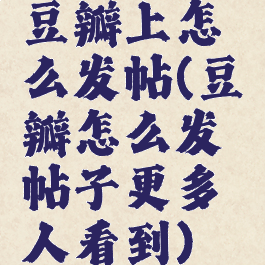 豆瓣上怎
么发帖(豆
瓣怎么发
帖子更多
人看到)